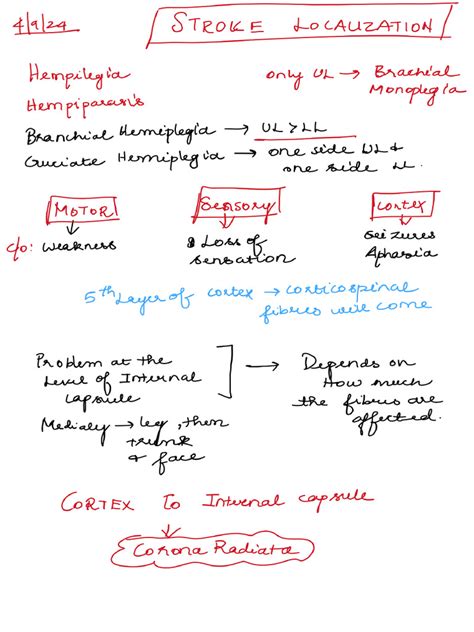 4/9/24
STROKE LOCALIZATION
Hempilegia
only UL → Brachial
Monoplegia
Hempiparasis
Branchial Hemiplegia → UL > LL
Cruciate Hemiplegia → one side UL &
one side LL.
MOTOR
Sensory
Cortex
c/o: weakness
Loss of
sensation
Seizures
Aphasia
5th Layer of cortex → corticospinal
fibres will come
Problem at the
Level of Internal
capsule
→ Depends on
How much
the fibres are
affected.
Medialy → leg, then
trunk
& face
CORTEX to Internal capsule
↓
Corona Radiata